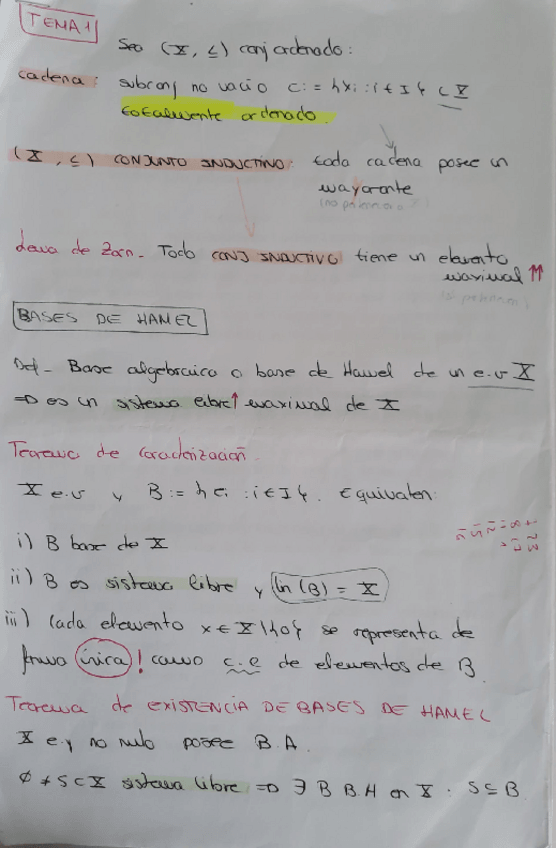 TEMA 1
Sea (X, ≤) conj ordenado:
cadena: subconj no vacío C := {xi : i ∈ I} ⊂ X
totalmente ordenado.
(X, ≤) CONJUNTO INDUCTIVO: toda cadena posee un
mayorante
Lema de Zorn - Todo CONJ INDUCTIVO tiene un elemento
maximal ⇈
BASES DE HAMEL
Def - Base algebraica o base de Hamel de un e.v X
⇒ es un sistema libre ↑ maximal de X
Teorema de Caracterización
X e.v y B := {ei : i ∈ I}. Equivalen:
i) B base de X
ii) B es sistema libre y lin (B) = X
iii) Cada elemento x ∈ X\{0} se representa de
forma única! como c.e de elementos de B.
Teorema de EXISTENCIA DE BASES DE HAMEL
X e.v no nulo posee B.A.
∅ ≠ S ⊂ X sistema libre ⇒ ∃ B B.H en X . S ⊆ B